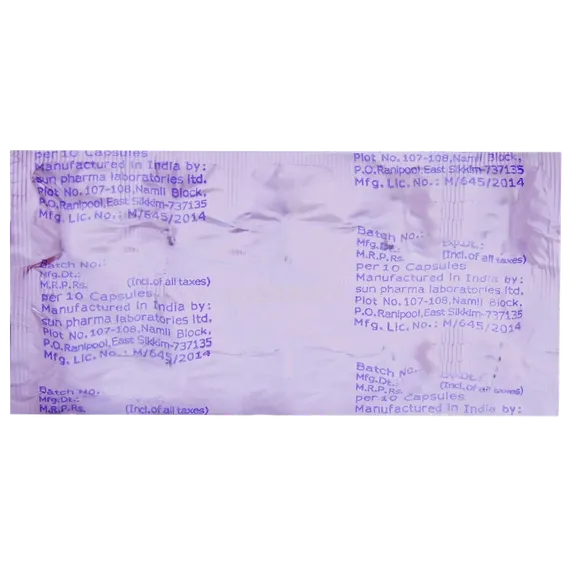 per 10 Capsules
Manufactured in India by:
sun pharma laboratories ltd.
Plot No. 107-108, Namli Block,
P.O.Ranipool, East Sikkim-737135
Mfg. Lic. No.: M/645/2014
Batch No.:
Mfg.Dt.:
M.R.P.Rs. (Incl. of all taxes)
per 10 Capsules
Manufactured in India by:
sun pharma laboratories ltd.
Plot No. 107-108, Namli Block,
P.O.Ranipool, East Sikkim-737135
Mfg. Lic. No.: M/645/2014
Batch No.
Mfg.Dt.:
M.R.P.Rs. (Incl. of all taxes)
Plot No. 107-108, Namli Block,
P.O.Ranipool, East Sikkim-737135
Mfg. Lic. No.: M/645/2014
Batch No.:
Mfg.Dt.: EXP.Dt.:
M.R.P.Rs. (Incl. of all taxes)
per 10 Capsules
Manufactured in India by:
sun pharma laboratories ltd.
Plot No. 107-108, Namli Block,
P.O.Ranipool, East Sikkim-737135
Mfg. Lic. No.: M/645/2014
Batch No.:
Mfg.Dt.:
M.R.P.Rs. (Incl. of all taxes)
per 10 Capsules
Manufactured in India by: